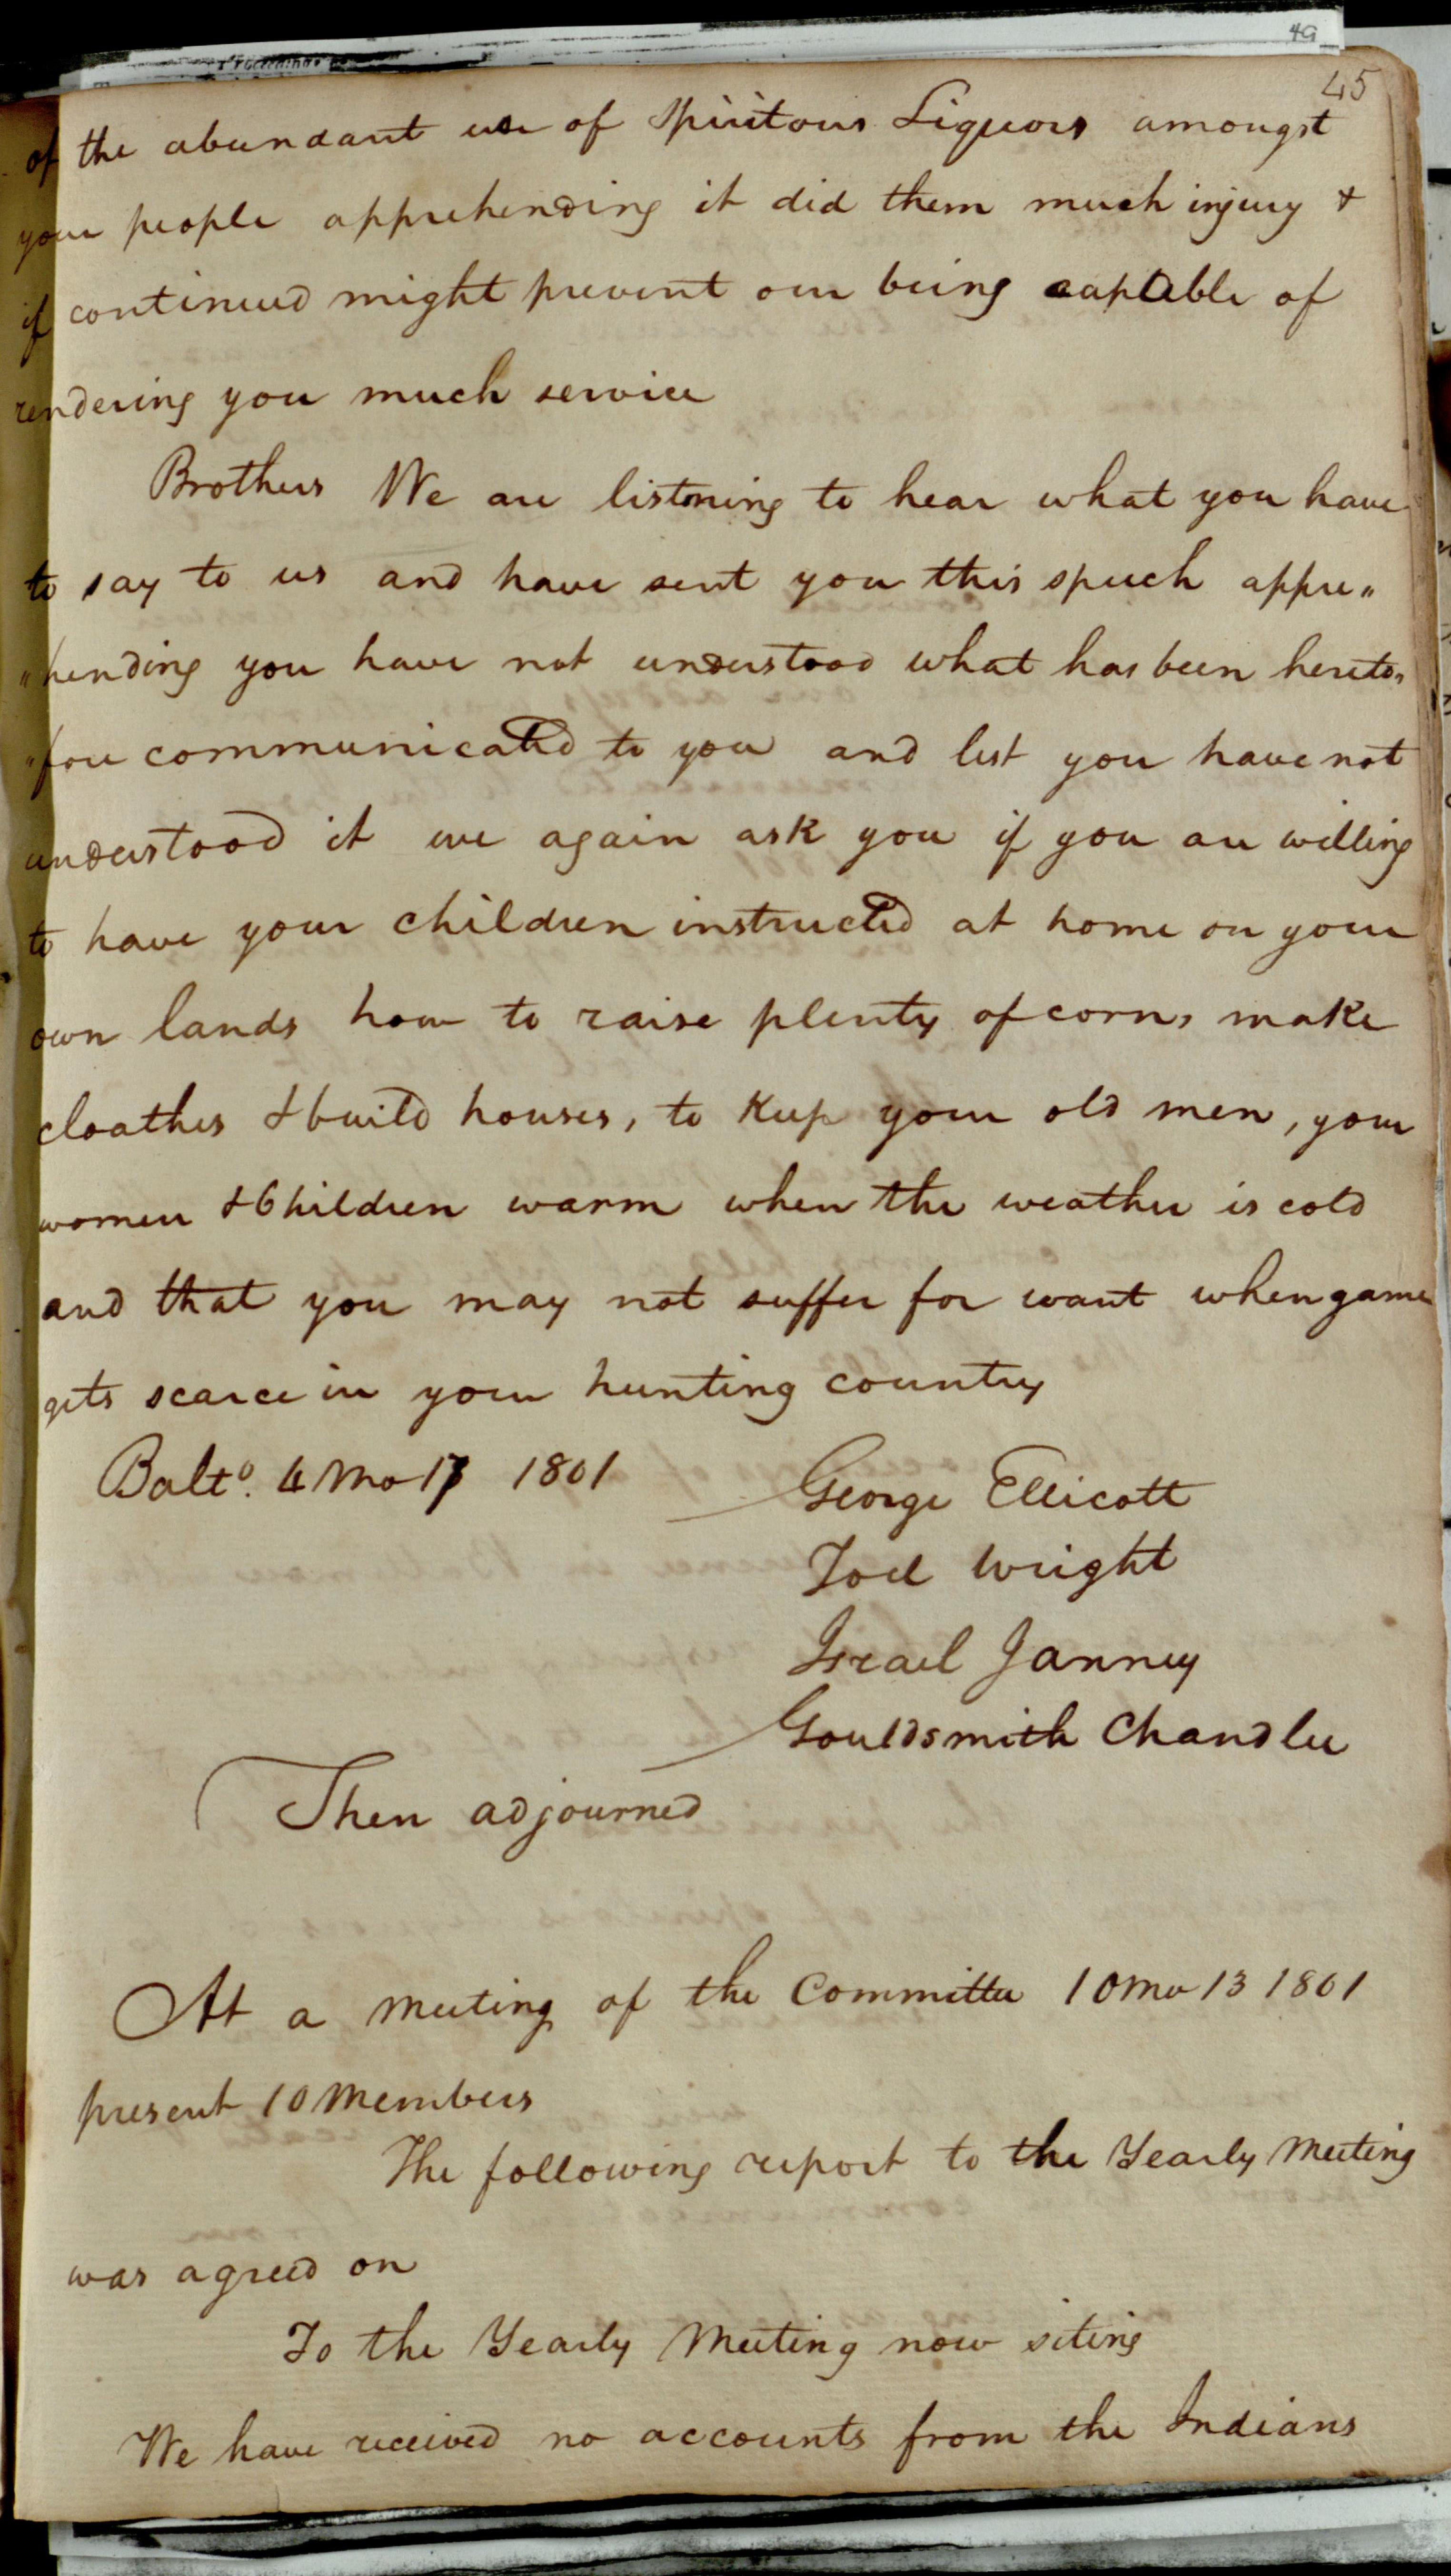 49
Proceedings
45
of the abundant use of Spiritous Liquors amongst
your people apprehending it did them much injury &
if continued might prevent our being capable of
rendering you much service
Brothers We are listening to hear what you have
to say to us and have sent you this speech appre"
"hending you have not understood what has been hereto"
"fore communicated to you and lest you have not
understood it we again ask you if you are willing
to have your children instructed at home on your
own lands how to raise plenty of corn, make
cloathes & build houses, to keep your old men, your
women & Children warm when the weather is cold
and that you may not suffer for want when game
gets scarce in your hunting country
Balto. 4 mo 17 1801
George Ellicott
Joel Wright
Israel Janney
Gouldsmith Chandlee
Then adjourned
At a meeting of the Committee 10 mo 13 1801
present 10 Members
The following report to the Yearly Meeting
was agreed on
To the Yearly Meeting now siting
We have received no accounts from the Indians